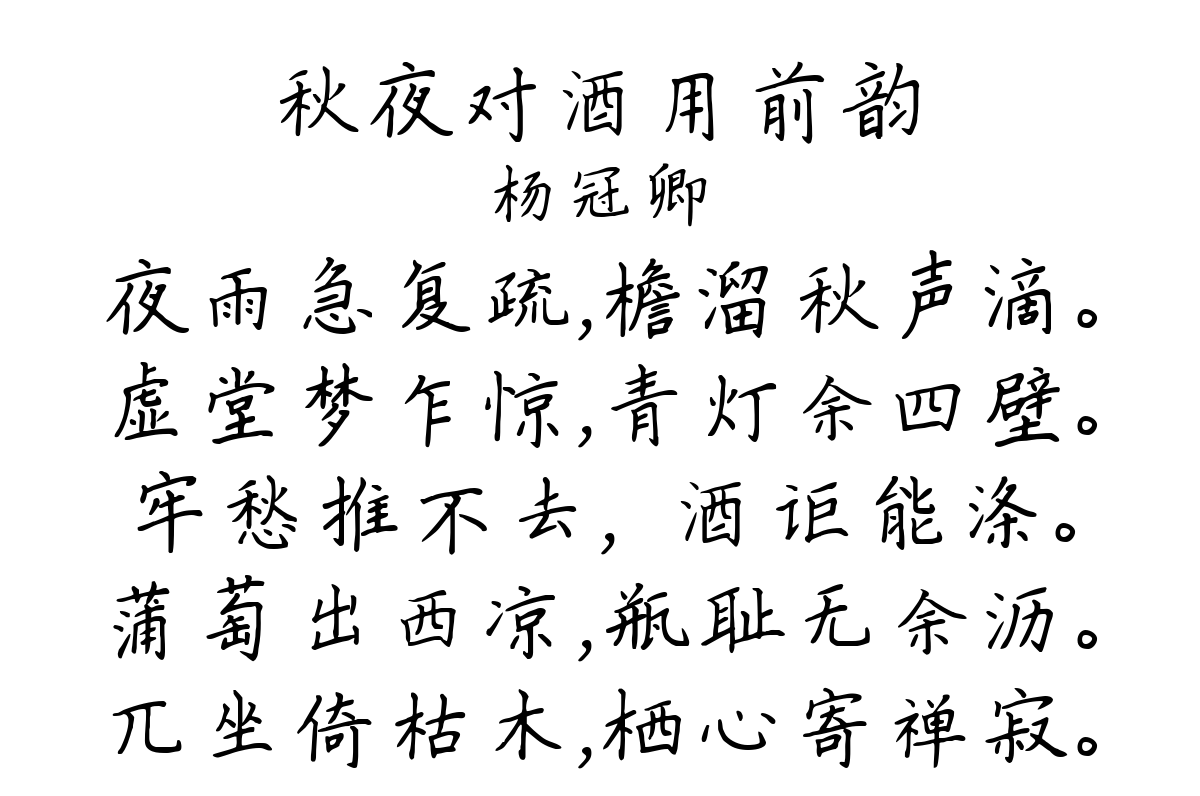 秋夜对酒用前韵
杨冠卿
夜雨急复疏,檐溜秋声滴。
虚堂梦乍惊,青灯余四壁。
牢愁推不去，酒讵能涤。
蒲萄出西凉,瓶耻无余沥。
兀坐倚枯木,栖心寄禅寂。